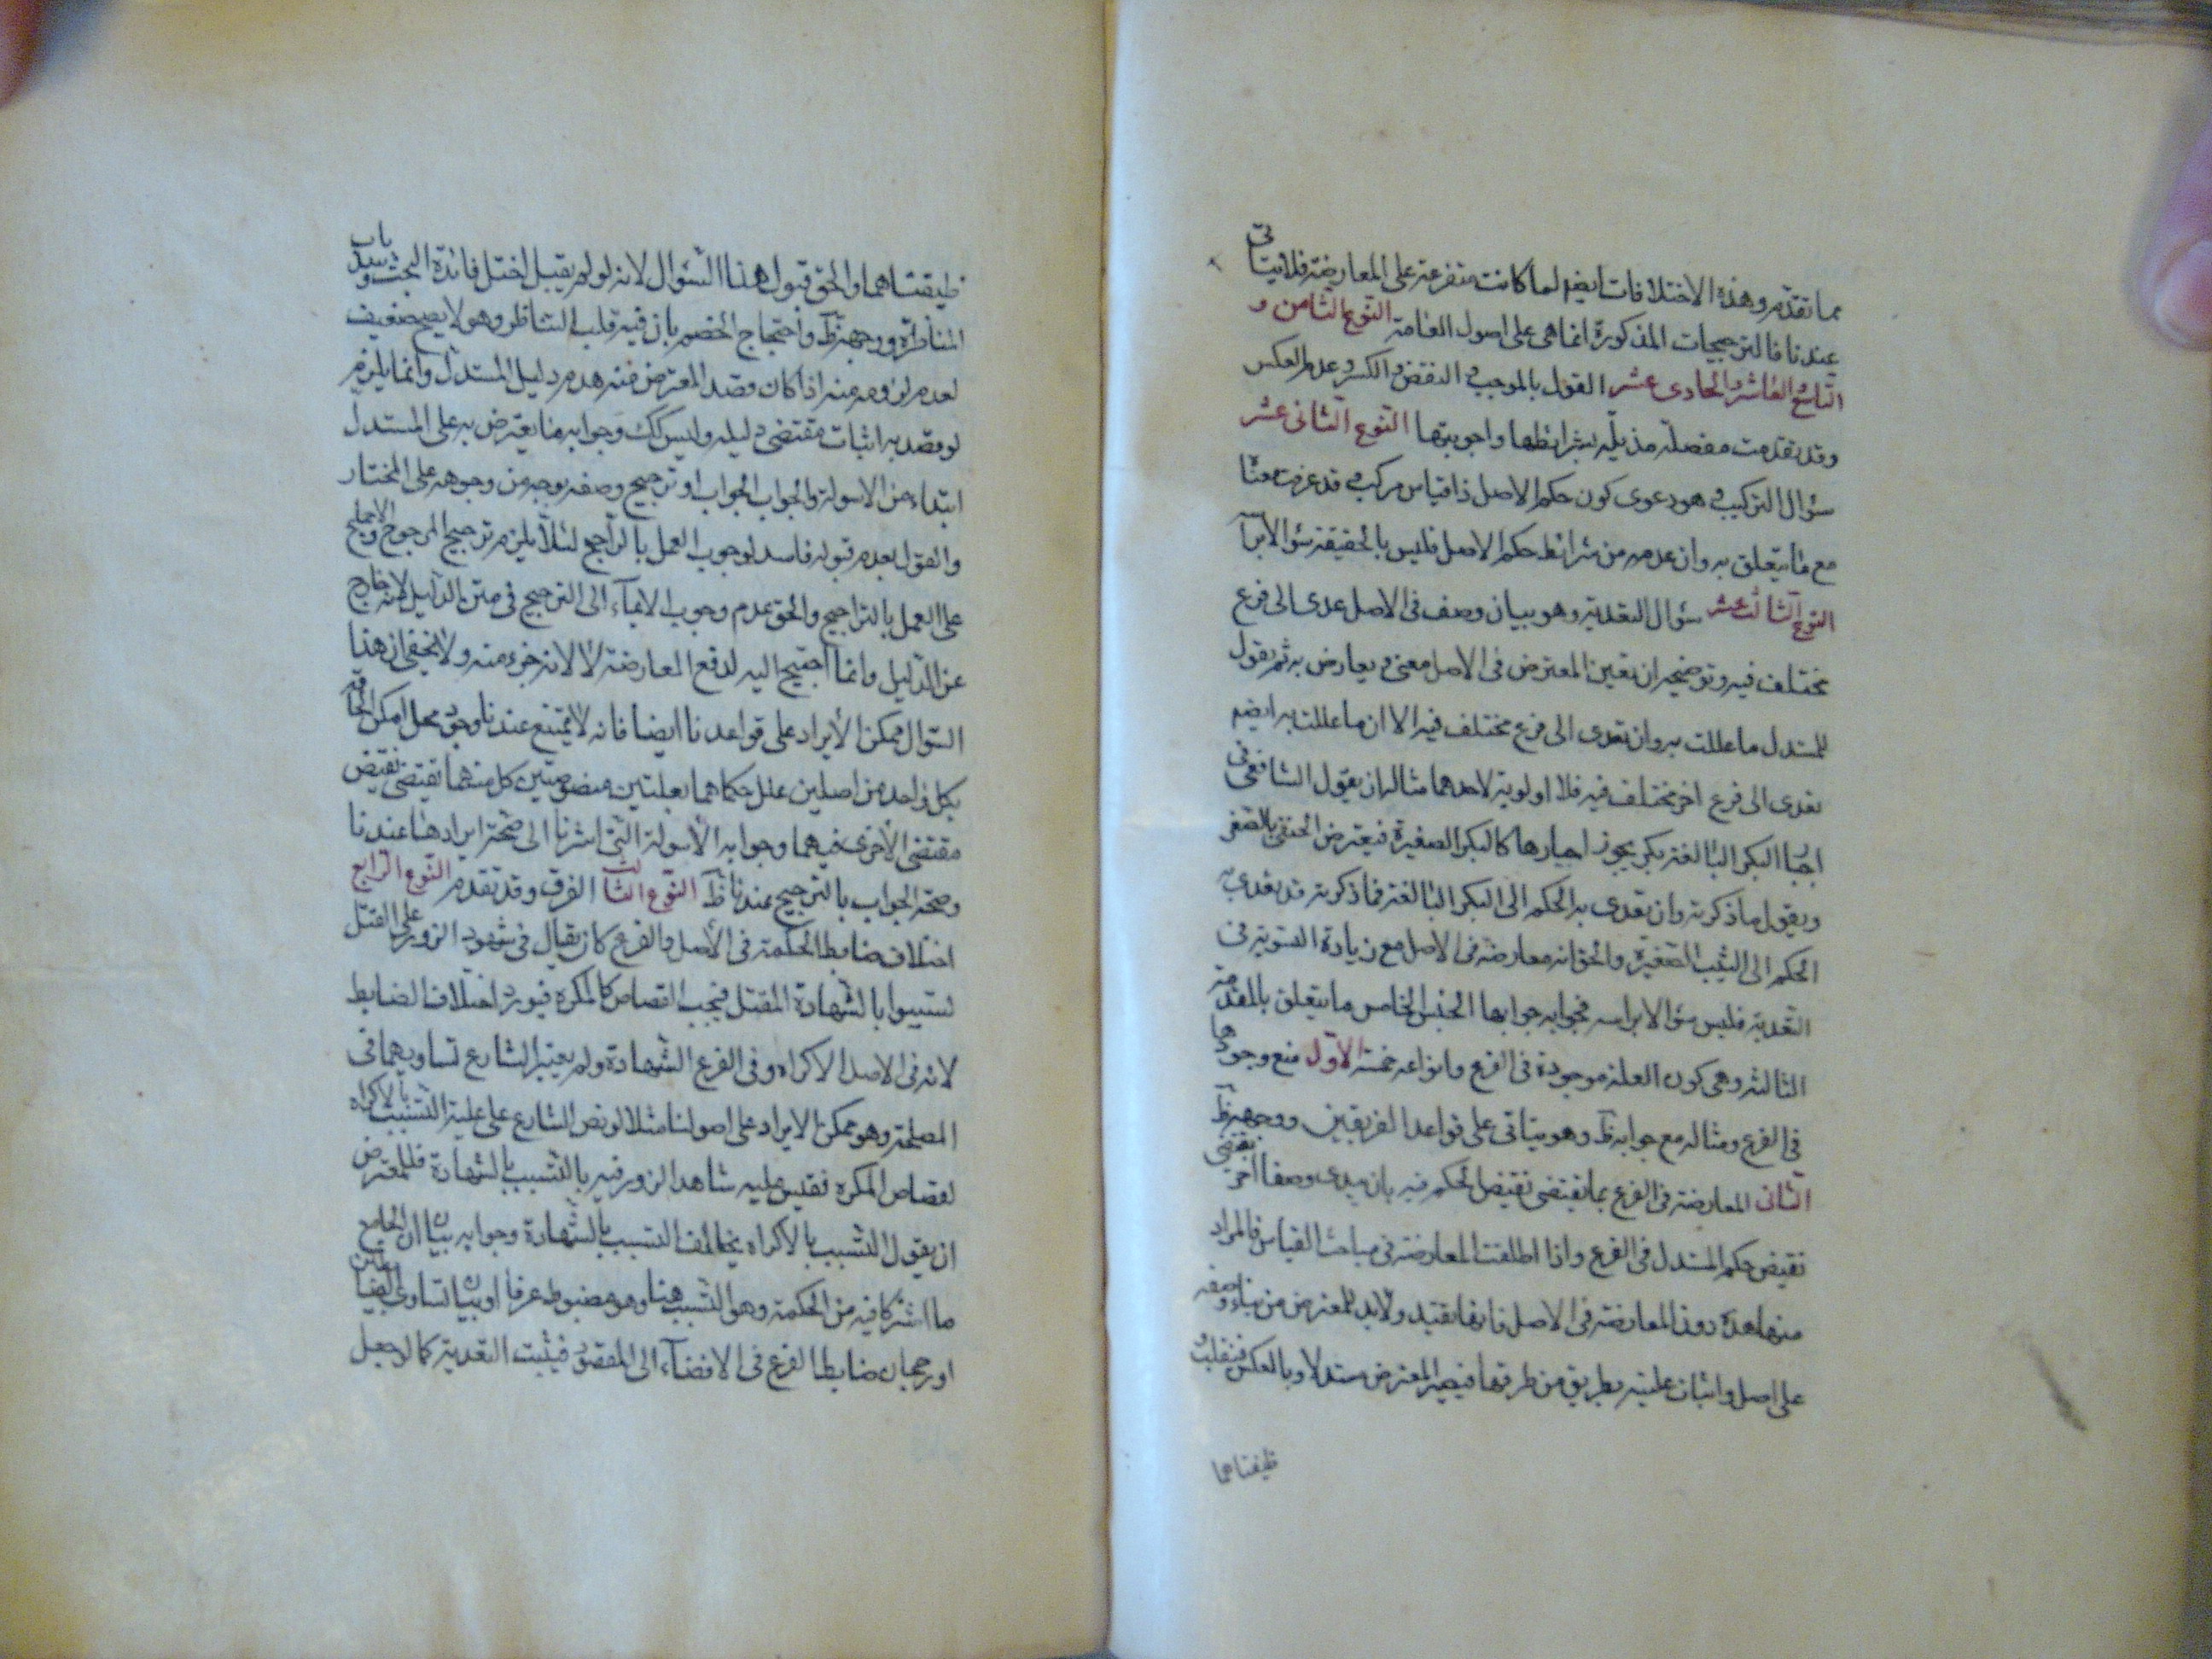 مما تقدم وهذه الاختلافات ايضم لما كانت متفرعة على المعارضة فلا يتاتى
عندنا فالترجيحات المذكورة انما هى على اصول العامة النوع الثامن و
التاسع والعاشر والحادى عشر القول بالموجب والنقض والكسر وعدم العكس
وقد تقدمت مفصلة مذيلة بشرائطها واجوبتها النوع الثانى عشر
سؤال التركيب وهو دعوى كون حكم الاصل ذا قياس مركب وقد عرفت
مع ما يتعلق به وان عدمه من شرائط حكم الاصل فليس بالحقيقة سؤالا براسه
النوع الثالث عشر سؤال التعدية وهو بيان وصف فى الاصل عدى الى فرع
مختلف فيه وتوضيحه ان يعين المعترض فى الاصل معنى ويعارض به ثم يقول
للمستدل ما عللت به وان تعدى الى فرع مختلف فيه الا ان ما عللت به ايضم
تعدى الى فرع اخر مختلف فيه فلا اولوية لاحدهما مثاله ان يقول الشافعى فى
اجبار البكر البالغة بكر يجوز اجبارها كالبكر الصغيرة فيعترض الحنفى بالصغر
ويقول ما ذكرته وان تعدى به الحكم الى البكر البالغة فما ذكرته قد تعدى به
الحكم الى الثيب الصغيرة والحق انه معارضة فى الاصل مع زيادة التسوية فى
التعدية فليس سؤالا براسه فجوابه جوابها الجنس الخامس ما يتعلق بالمقدمة
الثالثة وهى كون العلة موجودة فى الفرع وانواعه خمسة الاول منع وجودها
فى الفرع ومثاله مع جوابه ظ وهو يتاتى على قواعد الفريقين ووجهه ظ
الثانى المعارضة فى الفرع بما يقتضى نقيض الحكم فيه بان يبدى وصفا اخر يقتضى
نقيض حكم المستدل فى الفرع واذا اطلقت المعارضة فى مباحث القياس فالمراد
منها هذه دون المعارضة فى الاصل فانها تقيد ولا بد للمعترض من بناء وصفه
على اصل واثبات عليته بطريق من طرقها فيصير المعترض مستدلا وبالعكس فتنقلب
ظيفتاهما
ظيفتاهما والحق قبول هذا السؤال لانه لو لم يقبل لاختل فائدة البحث وسد باب
المناظرة ووجهه ظ واحتجاج الخصم بان فيه قلب التناظر وهو لا يصح ضعيف
لعدم لزومه منه اذا كان قصد المعترض منه هدم دليل المستدل وانما يلزم
لو قصد به اثبات مقتضى دليله وليس كك وجوابه ما يعترض به على المستدل
ابتداء من الاسولة والجواب الجواب او ترجيح وصفه بوجه من وجوهه على المختار
والقول بعدم قبوله فاسد لوجوب العمل بالراجح لئلا يلزم ترجيح المرجوح والاجماع
على العمل بالتراجيح والحق عدم وجوب الايماء الى الترجيح فى متن الدليل لانه خارج
عن الدليل وانما احتيج اليه لدفع المعارضة لا لانه جزء منه ولا يخفى ان هذا
السؤال ممكن الايراد على قواعدنا ايضا فانه لا يمتنع عندنا وجود محل امكن الحاقه
بكل واحد من اصلين علل حكماهما بعلتين منصوصتين كل منهما تقتضى نقيض
مقتضى الاخرى فيهما وجوابه الاسولة التى اشرنا الى صحة ايرادها عندنا
وصحة الجواب بالترجيح عندنا ظ النوع الثالث الفرق وقد تقدم النوع الرابع
اختلاف ضابط الحكمة فى الاصل والفرع كان يقال فى شهود الزور على القتل
تسببوا بالشهادة القتل فيجب القصاص كالمكره فيورد اختلاف الضابط
لانه فى الاصل الاكراه وفى الفرع الشهادة ولم يعتبر الشارع تساويهما فى
المصلحة وهو ممكن الايراد على اصولنا مثلا لو نص الشارع على علية التسبب بالاكراه
لقصاص المكره فقيس عليه شاهد الزور فيه بالتسبب بالشهادة فللمعترض
ان يقول التسبب بالاكراه يخالف التسبب بالشهادة وجوابه بيان ان الجامع
ما اشتركا فيه من الحكمة وهو التسبب هنا وهو مضبوط عرفا او بيان تساوى الضابطين
او رجحان ضابط الفرع فى الافضاء الى المقصود فيثبت التعدية كما لو جعل